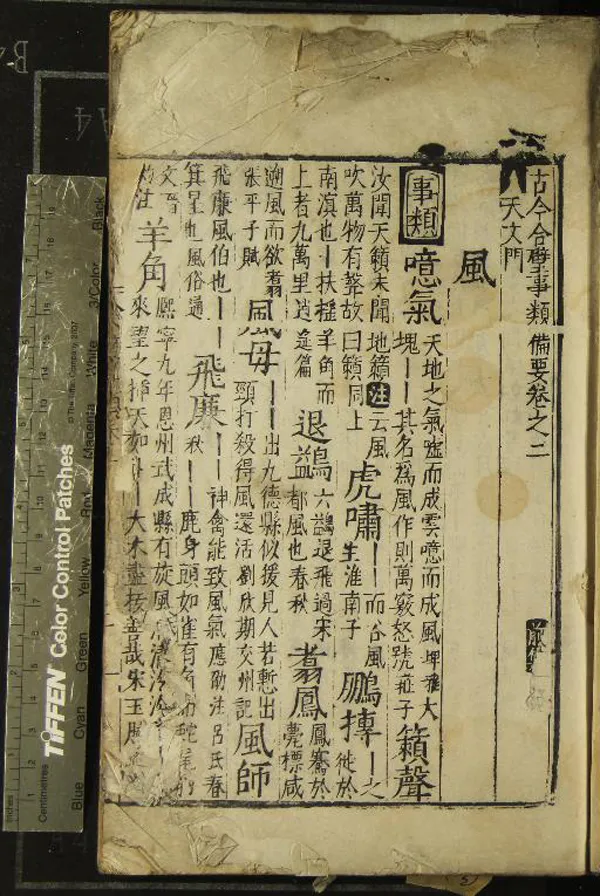 古今合璧事類備要卷之二
天文門
風
事類 噫氣 天地之氣噓而成雲噫而成風埤雅大
塊——其名爲風作則萬竅怒號莊子 籟聲
汝聞天籟未聞地籟注云風
吹萬物有聲故曰籟同上 虎嘯 ——而谷風
生淮南子 鵬摶 ——之
徙於
南溟也——扶搖羊角而
上者九萬里逍遙篇 退鷁 六鷁退飛過宋
都風也春秋 翥鳳 鳳騫於
甍標咸
遡風而欲翥
張平子賦 風母 ——出九德縣似猨見人若慙出
頸打殺得風還活劉欣期交州記 風師
飛廉風伯也——神禽能致風氣應劭注呂氏春
箕星也風俗通 飛廉 秋——鹿身頭如雀有角蛇尾豹
文晉
灼注 羊角 熙寧九年恩州武成縣有旋風
來望之插天如——大木盡拔 宋玉賦